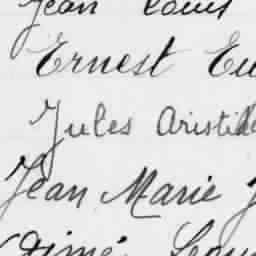 Jean Louis
Ernest Eu
Jules Aristide
Jean Marie J
Aimé